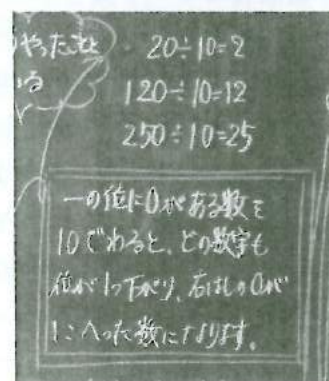 やったこと
いる
20÷10=2
120÷10=12
250÷10=25
一の位に0がある数を
10でわると、どの数字も
位が1つ下がり、右はしの0が
1こへった数になります。